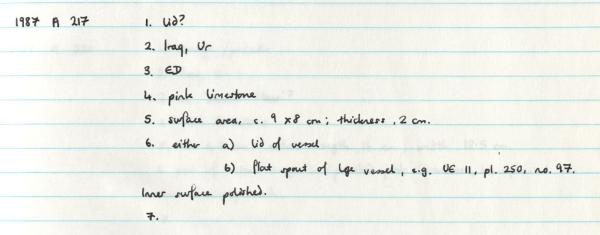 1987 A 217 1. Lid?
2. Iraq, Ur
3. ED
4. pink limestone
5. surface area, c. 9 x 8 cm; thickness, 2 cm.
6. either a) lid of vessel
b) flat spout of lge vessel, e.g. UE II, pl. 250, no. 97.
Inner surface polished.
7.